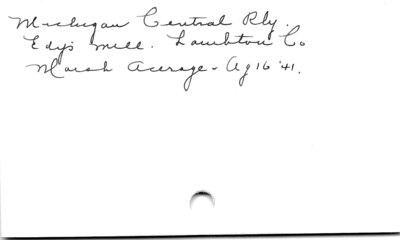 Michigan Central Rly.
Edys Mill. Lambton Co
Marsh Acerage - Ag 16 '41.